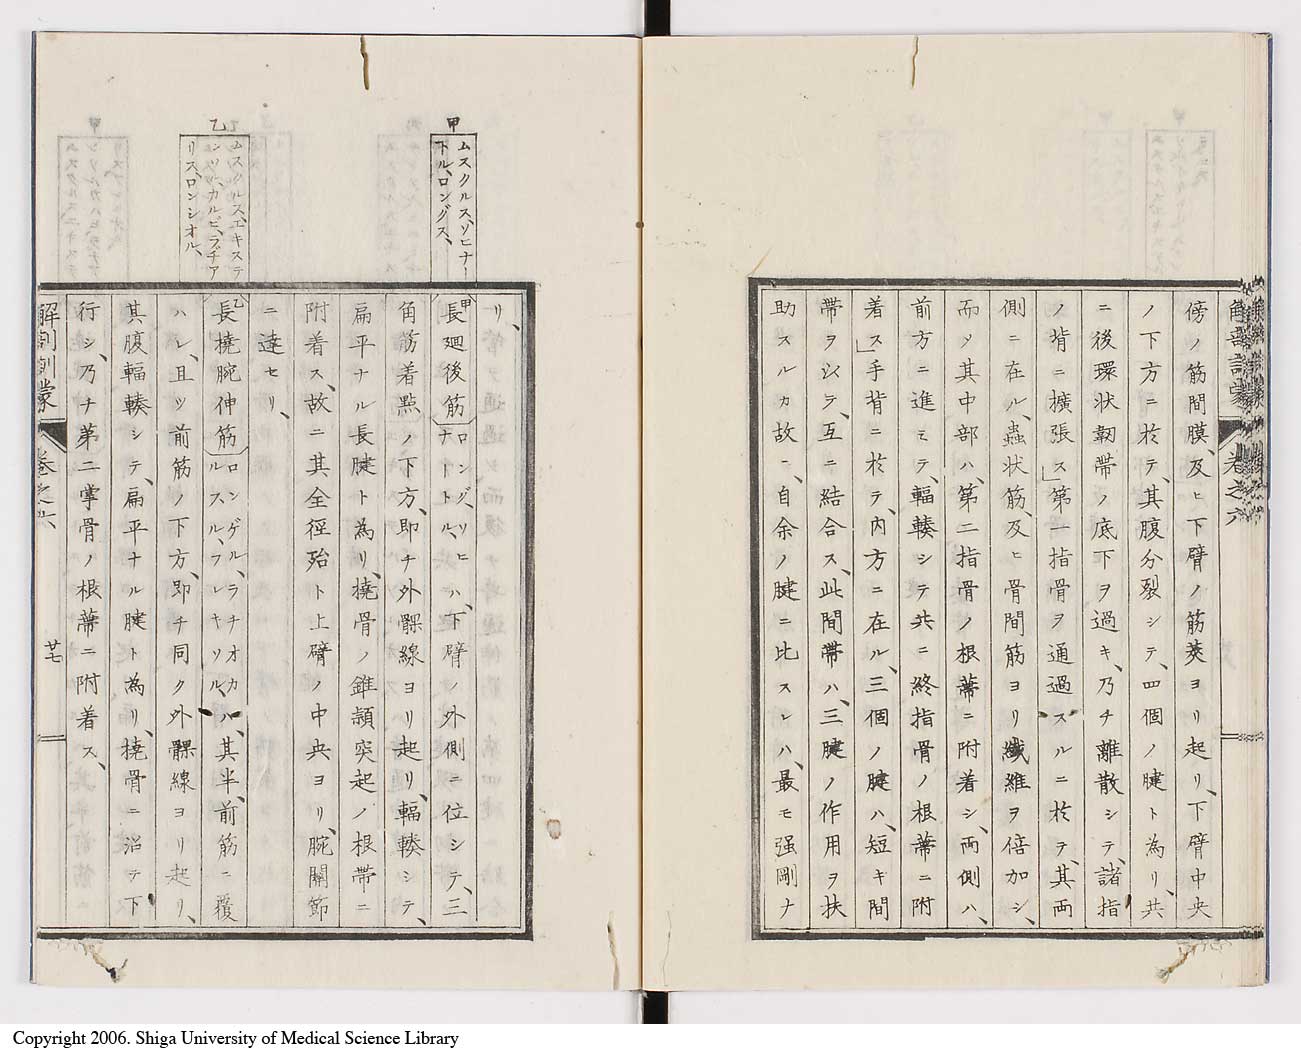 解剖訓蒙 卷之六
傍ノ筋間膜、及ヒ下臂ノ筋莢ヨリ起リ、下臂中央
ノ下方ニ於テ、其腹分裂シテ、四個ノ腱ト為リ、共
ニ後環状靭帶ノ底下ヲ過キ、乃チ離散シテ、諸指
ノ背ニ擴張ス」第一指骨ヲ通過スルニ於ヲ、其両
側ニ在ル、蟲状筋、及ヒ骨間筋ヨリ纎維ヲ倍加シ、
而〆其中部ハ、第二指骨ノ根蔕ニ附着シ、両側ハ、
前方ニ進ミテ、輻輳シテ共ニ終指骨ノ根蔕ニ附
着ス」手背ニ於テ、内方ニ在ル、三個ノ腱ハ、短キ間
帶ヲ以テ、互ニ結合ス、此間帶ハ、三腱ノ作用ヲ扶
助スルカ故ニ、自余ノ腱ニ比スレハ、最モ强剛ナ
リ、
甲
ムスクルス、ソヒナー
トル、ロングス、
甲長廻後筋ロングリヒ
ナトトル、ハ、下臂ノ外側ニ位シテ、三
角筋着㸃ノ下方、即チ外髁線ヨリ起リ、輻輳シテ、
扁平ナル長腱ト為リ、撓骨ノ錐顈突起ノ根帶ニ
附着ス、故ニ其全徑殆ト上臂ノ中央ヨリ、腕關節
ニ達セリ、
乙
ムスクルス、エキステ
ンソル、カルピ、ラヂア
リス、ロンシオル、
乙長撓腕伸筋ロンゲル、ラチオカ
ルスル、フレキソル、ハ、其半、前筋ニ覆
ハレ、且ツ前筋ノ下方、即チ同ク外髁線ヨリ起リ、
其腹輻輳シテ、扁平ナル腱ト為リ、撓骨ニ沿テ下
行シ、乃チ第二掌骨ノ根蔕ニ附着ス、
解剖訓蒙 卷之六 廿七
Copyright 2006. Shiga University of Medical Science Library